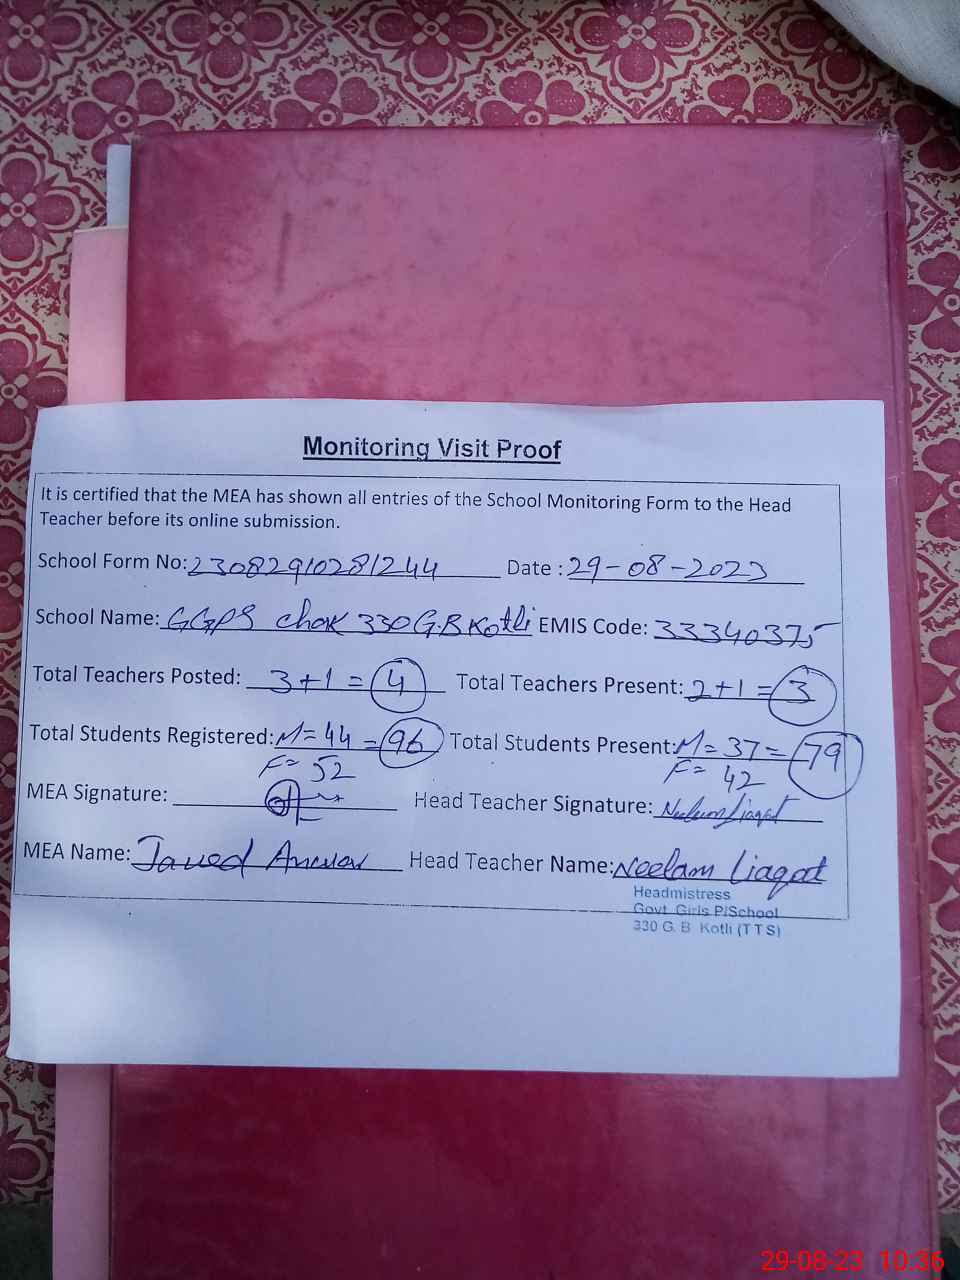 Monitoring Visit Proof
It is certified that the MEA has shown all entries of the School Monitoring Form to the Head
Teacher before its online submission.
School Form No: 23082910281244 Date : 29-08-2023
School Name: GGPS Chak 330 G.B Kotli EMIS Code: 33340375
Total Teachers Posted: 3+1 = 4 Total Teachers Present: 2+1 = 3
Total Students Registered: M=44 =96 Total Students Present: M=37= 79
F= 52 F= 42
MEA Signature: Head Teacher Signature: Neelam Liaqat
MEA Name: Javed Anwar Head Teacher Name: Neelam Liaqat
Headmistress
Govt. Girls P/School
330 G. B Kotli (T T S)
29-08-23 10:36